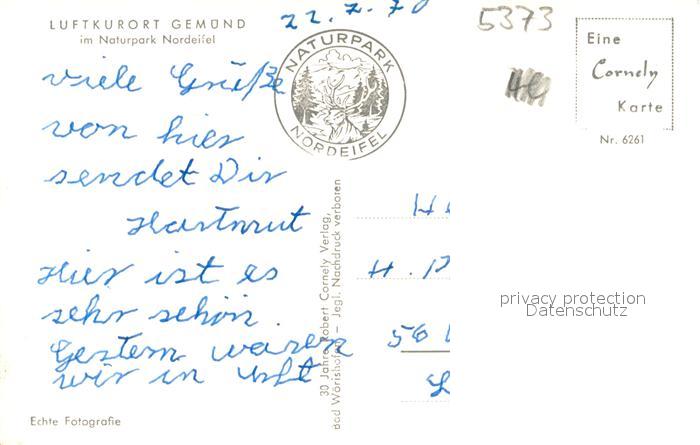 LUFTKURORT GEMÜND
im Naturpark Nordeifel
22.7.70
viele Grüße
von hier
sendet Dir
Hartmut
Hier ist es
sehr schön.
Gestern waren
wir in Urft
Echte Fotografie
NATURPARK
NORDEIFEL
30 Jahre Robert Cornely Verlag,
Bad Wörishofen – Jegl. Nachdruck verboten
5373
Eine
Cornely
Karte
Nr. 6261
H
H. 
56
privacy protection
Datenschutz